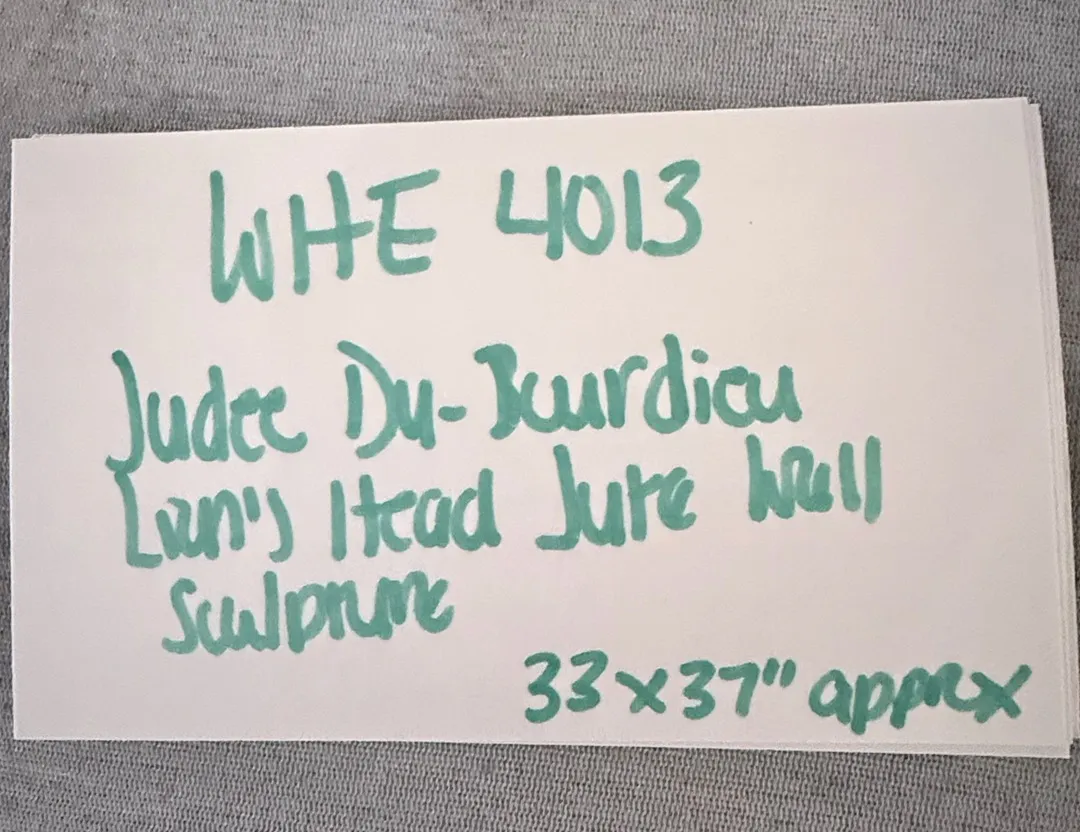 WHE 4013
Judee Du-Bourdieu
Lion's Head Jute Wall
Sculpture
33x37" approx